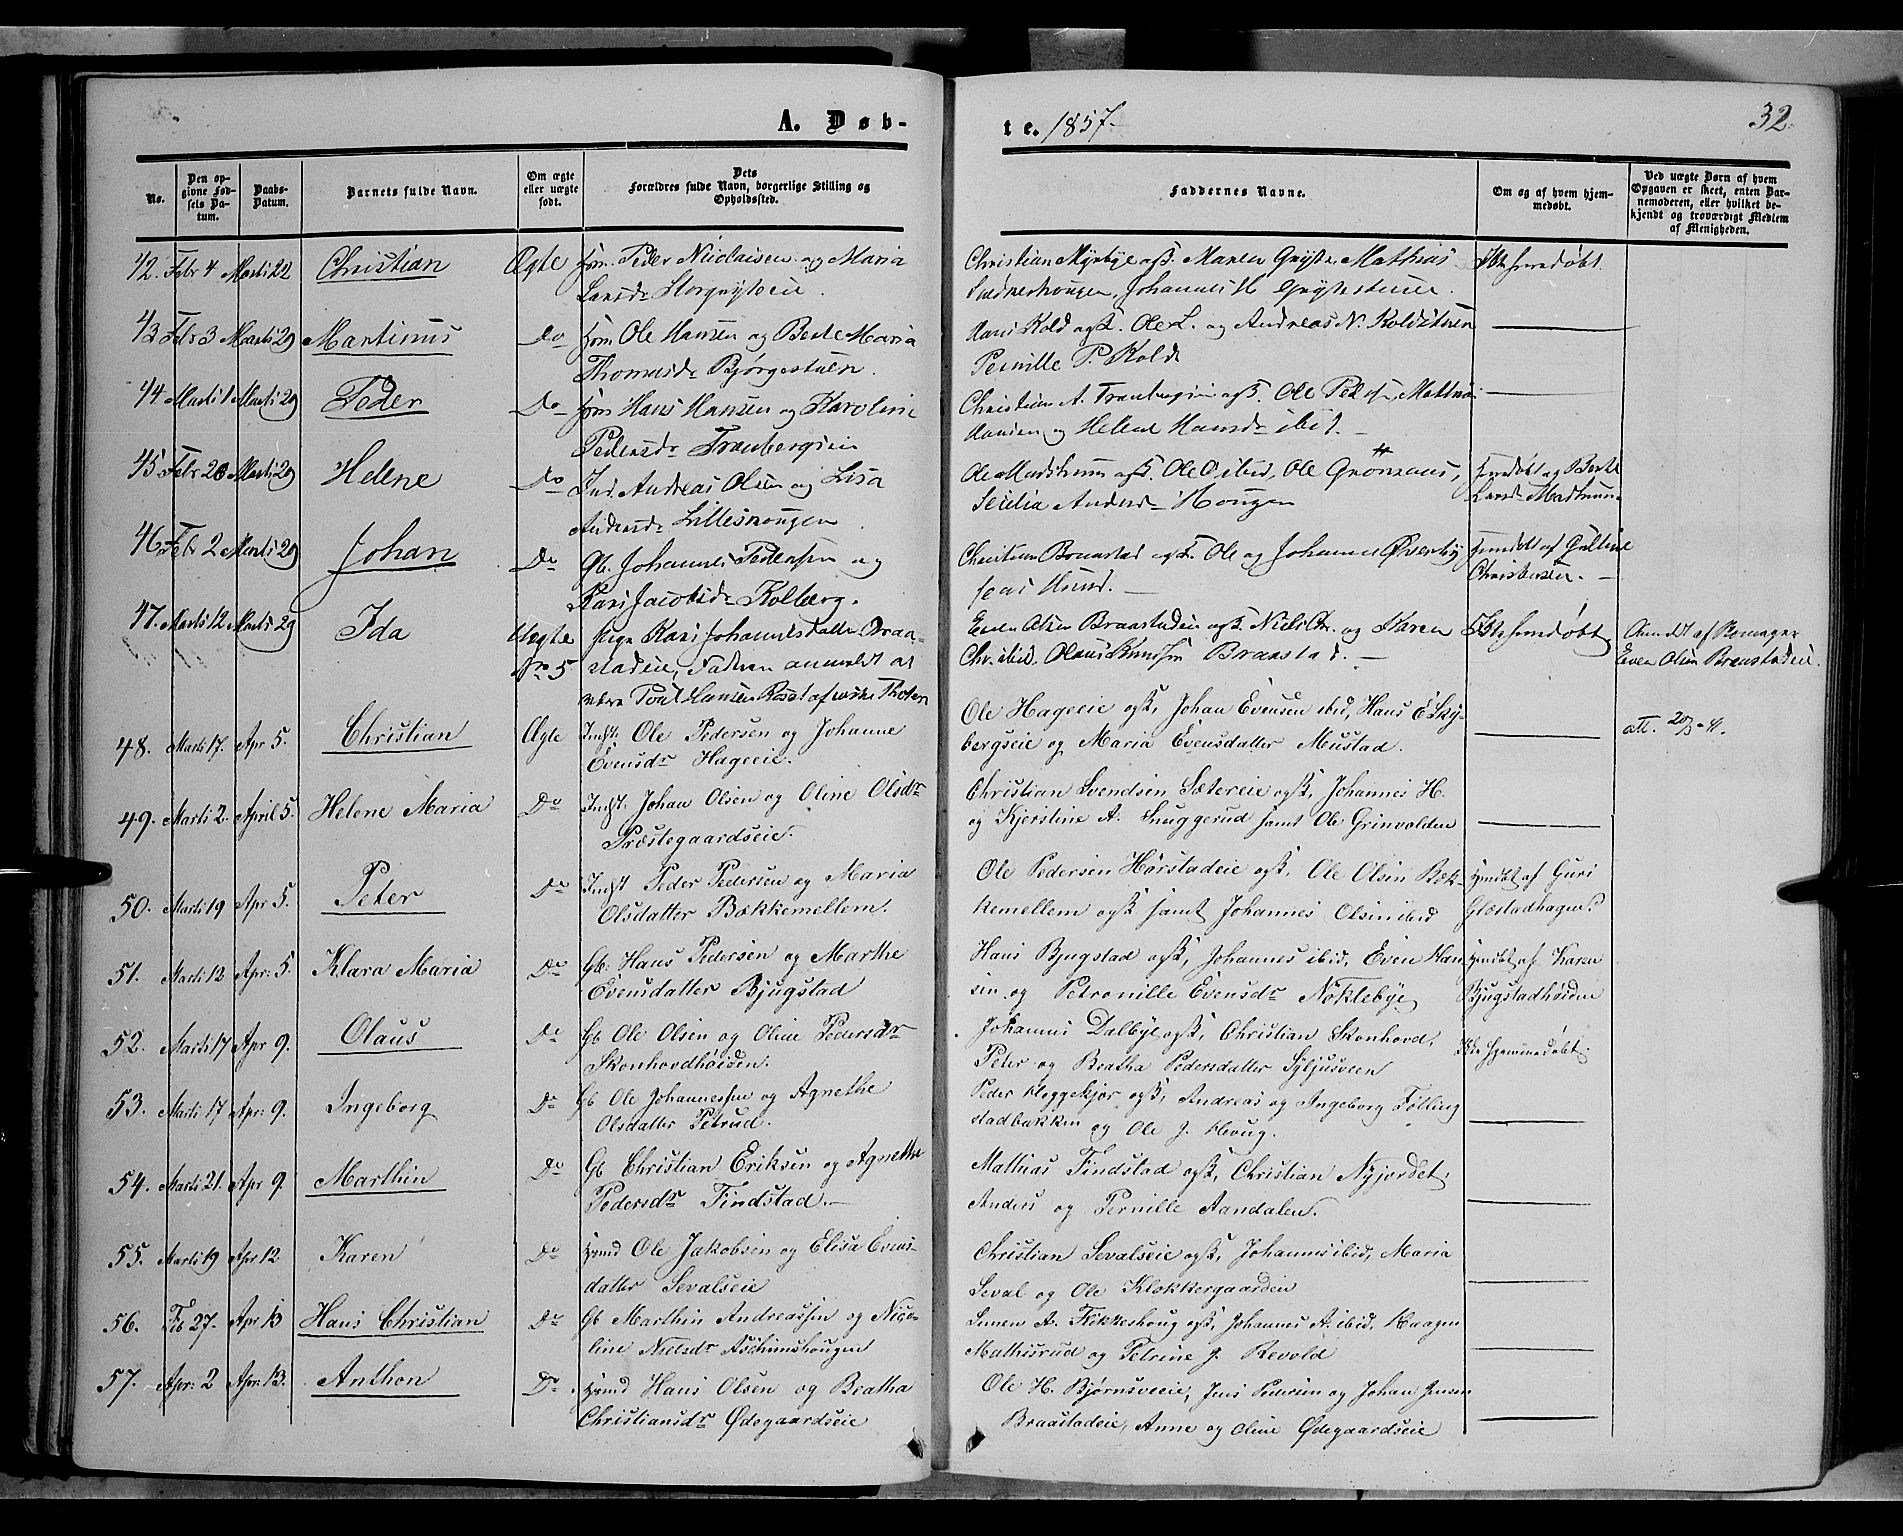 A. Døb-
te. 1857.
32.
No.
Den op-
givne Fød-
sels Da-
tum.
Daabs-
Datum.
Barnets fulde Navn.
Om ægte
eller uægte
født.
Dets
Forældres fulde Navn, borgerlige Stilling og
Opholdssted.
Faddernes Navne.
Om og af hvem hjem-
medøbt.
Ved uægte Børn af hvem
Opgaven er skeet, enten Bar-
nemoderen, eller hvilket be-
kjendt og troværdigt Medlem
af Menigheden.
42. Febr 4 Marti 22 Christian Ægte Peder Nicolaisen og Maria
Larsdr
Christian Myrbye ogsk. Maren Mathias
Johannes H.
Ikke hjemdøbt.
43 Febr 3 Marti 29 Martinus Do Ole Hansen og Berte Maria
Thomasdr Bjørgestuen.
Hans Kold ogsk. Ole L. og Andreas N. Koldstuen
Pernille P. Kold
44 Marti 1 Marti 29 Peder Do Hans Hansen og Karoline
Pedersdr Tranbergeie
Christian A. Tranbergeie ogsk. Ole
Hansen og Helene Hansdr ibid.
45 Febr 20 Marti 29 Helene Do Ind. Andreas Olsen og Lisa
Andersdr Lilleshougen
Ole ogsk. Ole Ole
Andersdr Hougen
hjemdøbt og Berte
Larsdr
46 Febr 2 Marti 29 Johan Do Gb. Johannes Pedersen og
Kari Jacobsdr Kolberg.
Christian Braastad ogsk. Ole og Johannes Øverby
hjemdøbt af
Christensen.
47. Marti 12 Marti 29 Ida Uægte Pige Kari Johannesdatter Braa-
No 5 stadeie, Faderen anmeldt at
være Poul Hansen af Thoten
Even Olsen Braastadeie ogsk. Niels Chr. og Karen
Chr. ibid. Olaus Knudsen Braastad.
Ikke hjemdøbt
Anmeldt af
Even Olsen Braastadeie.
48. Marti 17. Apr 5. Christian Ægte Indst. Ole Pedersen og Johanne
Evensdr Hageeie.
Ole Hageeie ogsk, Johan Evensen ibid, Hans E Sky-
bergseie og Maria Evensdatter Mustad.
att. 20/3
49. Marti 2. April 5. Helene Maria Do Indst. Johan Olsen og Oline Olsdr
Præstegaardseie.
Christian Svendsen Sætereie ogsk, Johannes H.
og Kjerstine A. Snuggerud samt Ole Grinvolden
50. Marti 19 Apr 5. Peter Do Indst Peder Pedersen og Maria
Olsdatter Bækkemellem.
Ole Pedersen Hørstadeie ogsk, Ole Olsen Bæk-
kemellem ogsk samt Johannes Olsen ibid
Hjemdøbt af Guri
Glæstadhagen.
51. Marti 12 Apr: 5. Klara Maria Do Gb. Hans Pedersen og Marthe
Evensdatter Bjugstad
Hans Bjugstad ogsk, Johannes ibid, Even Han-
sen og Petronille Evensdr Nøklebye
Hjemdøbt af Karen
Bjugstadhøiden
52. Marti 17 Apr 9. Olaus Do Gb Ole Olsen og Oline Pedersdr
Skonhovdhøiden.
Johannes Dalbye ogsk, Christian Skonhovd,
Peter og Beatha Pedersdatter Syljusveen
Ikke hjemmedøbt.
53. Marti 17 Apr: 9. Ingeborg Do Gb Ole Johannessen og Agnethe
Olsdatter Petrud.
Peder Kleggekjør ogsk, Andreas og Ingeborg Følling-
stadbakken og Ole J. Houg.
54. Marti 21. Apr 9. Marthin Do Gb Christian Eriksen og Agnethe
Pedersdr Findstad.
Mathias Findstad ogsk, Christian Nyjordet,
Anders og Pernille Aandalen.
55. Marti 19 Apr 12 Karen Do Hmd Ole Jakobsen og Elisa Evens-
datter Sevalseie
Christian Sevalseie ogsk, Johannes ibid, Maria
Seval og Ole Klokkergaarden
56. Feb 27. Apr 13 Hans Christian Do Gb Marthin Andreassen og Nico-
line Nielsdr Aschimshougen
Simen A. Fikkeshoug ogsk, Johannes A. ibid, Haagen
Mathisrud og Petrine J. Revold
57. Apr: 2 Apr. 13. Anthon Do Hmd Hans Olsen og Beatha
Christiansdr Ødegaardseie
Ole H. Bjørnsveeie, Jens Pedersen og Johan Jensen
Braastadeie, Anne og Oline Ødegaardseie